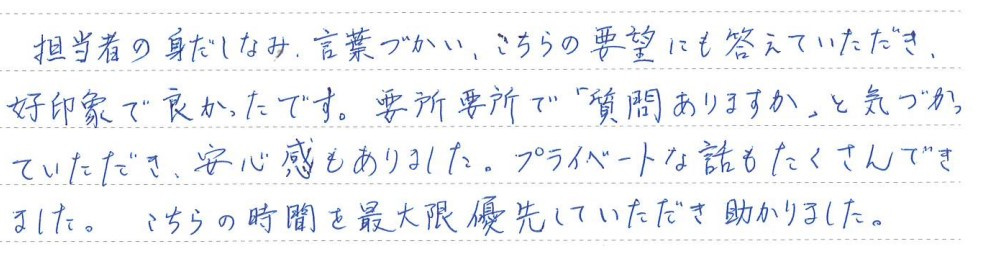 担当者の身だしなみ、言葉づかい、こちらの要望にも答えていただき、
好印象で良かったです。要所要所で「質問ありますか」と気づかっ
ていただき、安心感もありました。プライベートな話もたくさんでき
ました。 こちらの時間を最大限優先していただき助かりました。